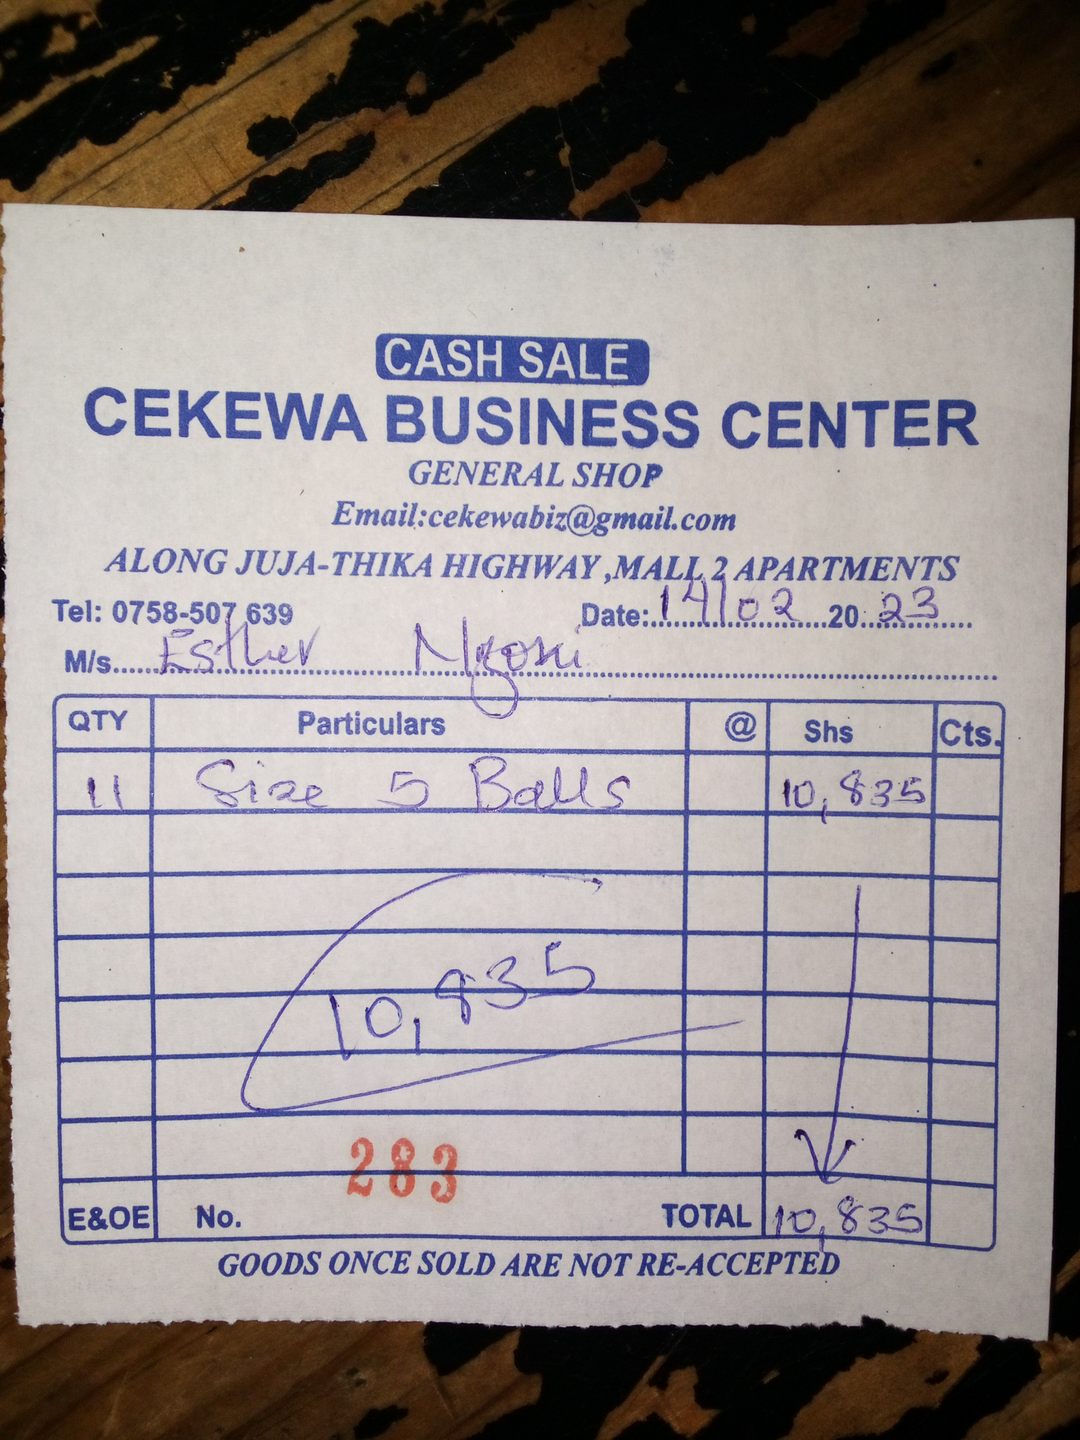 CASH SALE
CEKEWA BUSINESS CENTER
GENERAL SHOP
Email:cekewabiz@gmail.com
ALONG JUJA-THIKA HIGHWAY ,MALL 2 APARTMENTS
Tel: 0758-507 639 Date:..14/02..20..23..
M/s....Esther
QTY Particulars @ Shs Cts.
11 Size 5 Balls 10,835
10,835
283
E&OE No. TOTAL 10,835
GOODS ONCE SOLD ARE NOT RE-ACCEPTED